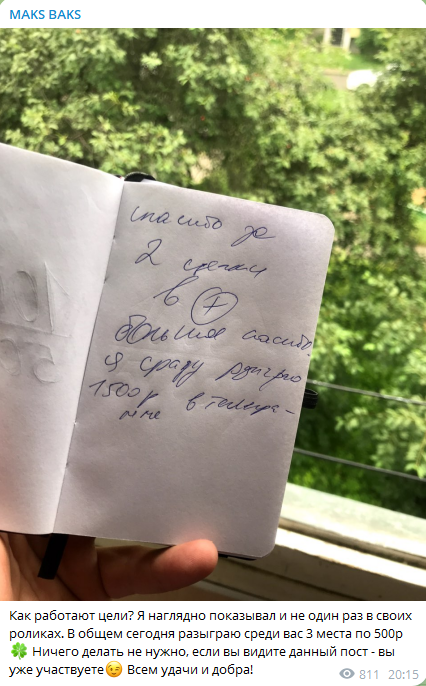 MAKS BAKS
спасибо за
2 сделки
в +
большое спасибо.
Я сразу розыграю
1500р в телегра-
мме
Как работают цели? Я наглядно показывал и не один раз в своих
роликах. В общем сегодня разыграю среди вас 3 места по 500р
🍀 Ничего делать не нужно, если вы видите данный пост - вы
уже участвуете😉 Всем удачи и добра!
811 20:15